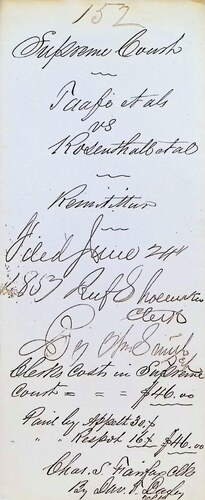 152
Supreme Court
Taafe et als
vs
Rosenthall et al
Remittitur
Filed June 24th
1857
Clerk
By Wm Smith
Clerks Costs in Supreme
Court = = = $46.00
Paid by Appelt 30.x
" Respdt 16x $46.00
Chas. S. Fairfax Clk
By